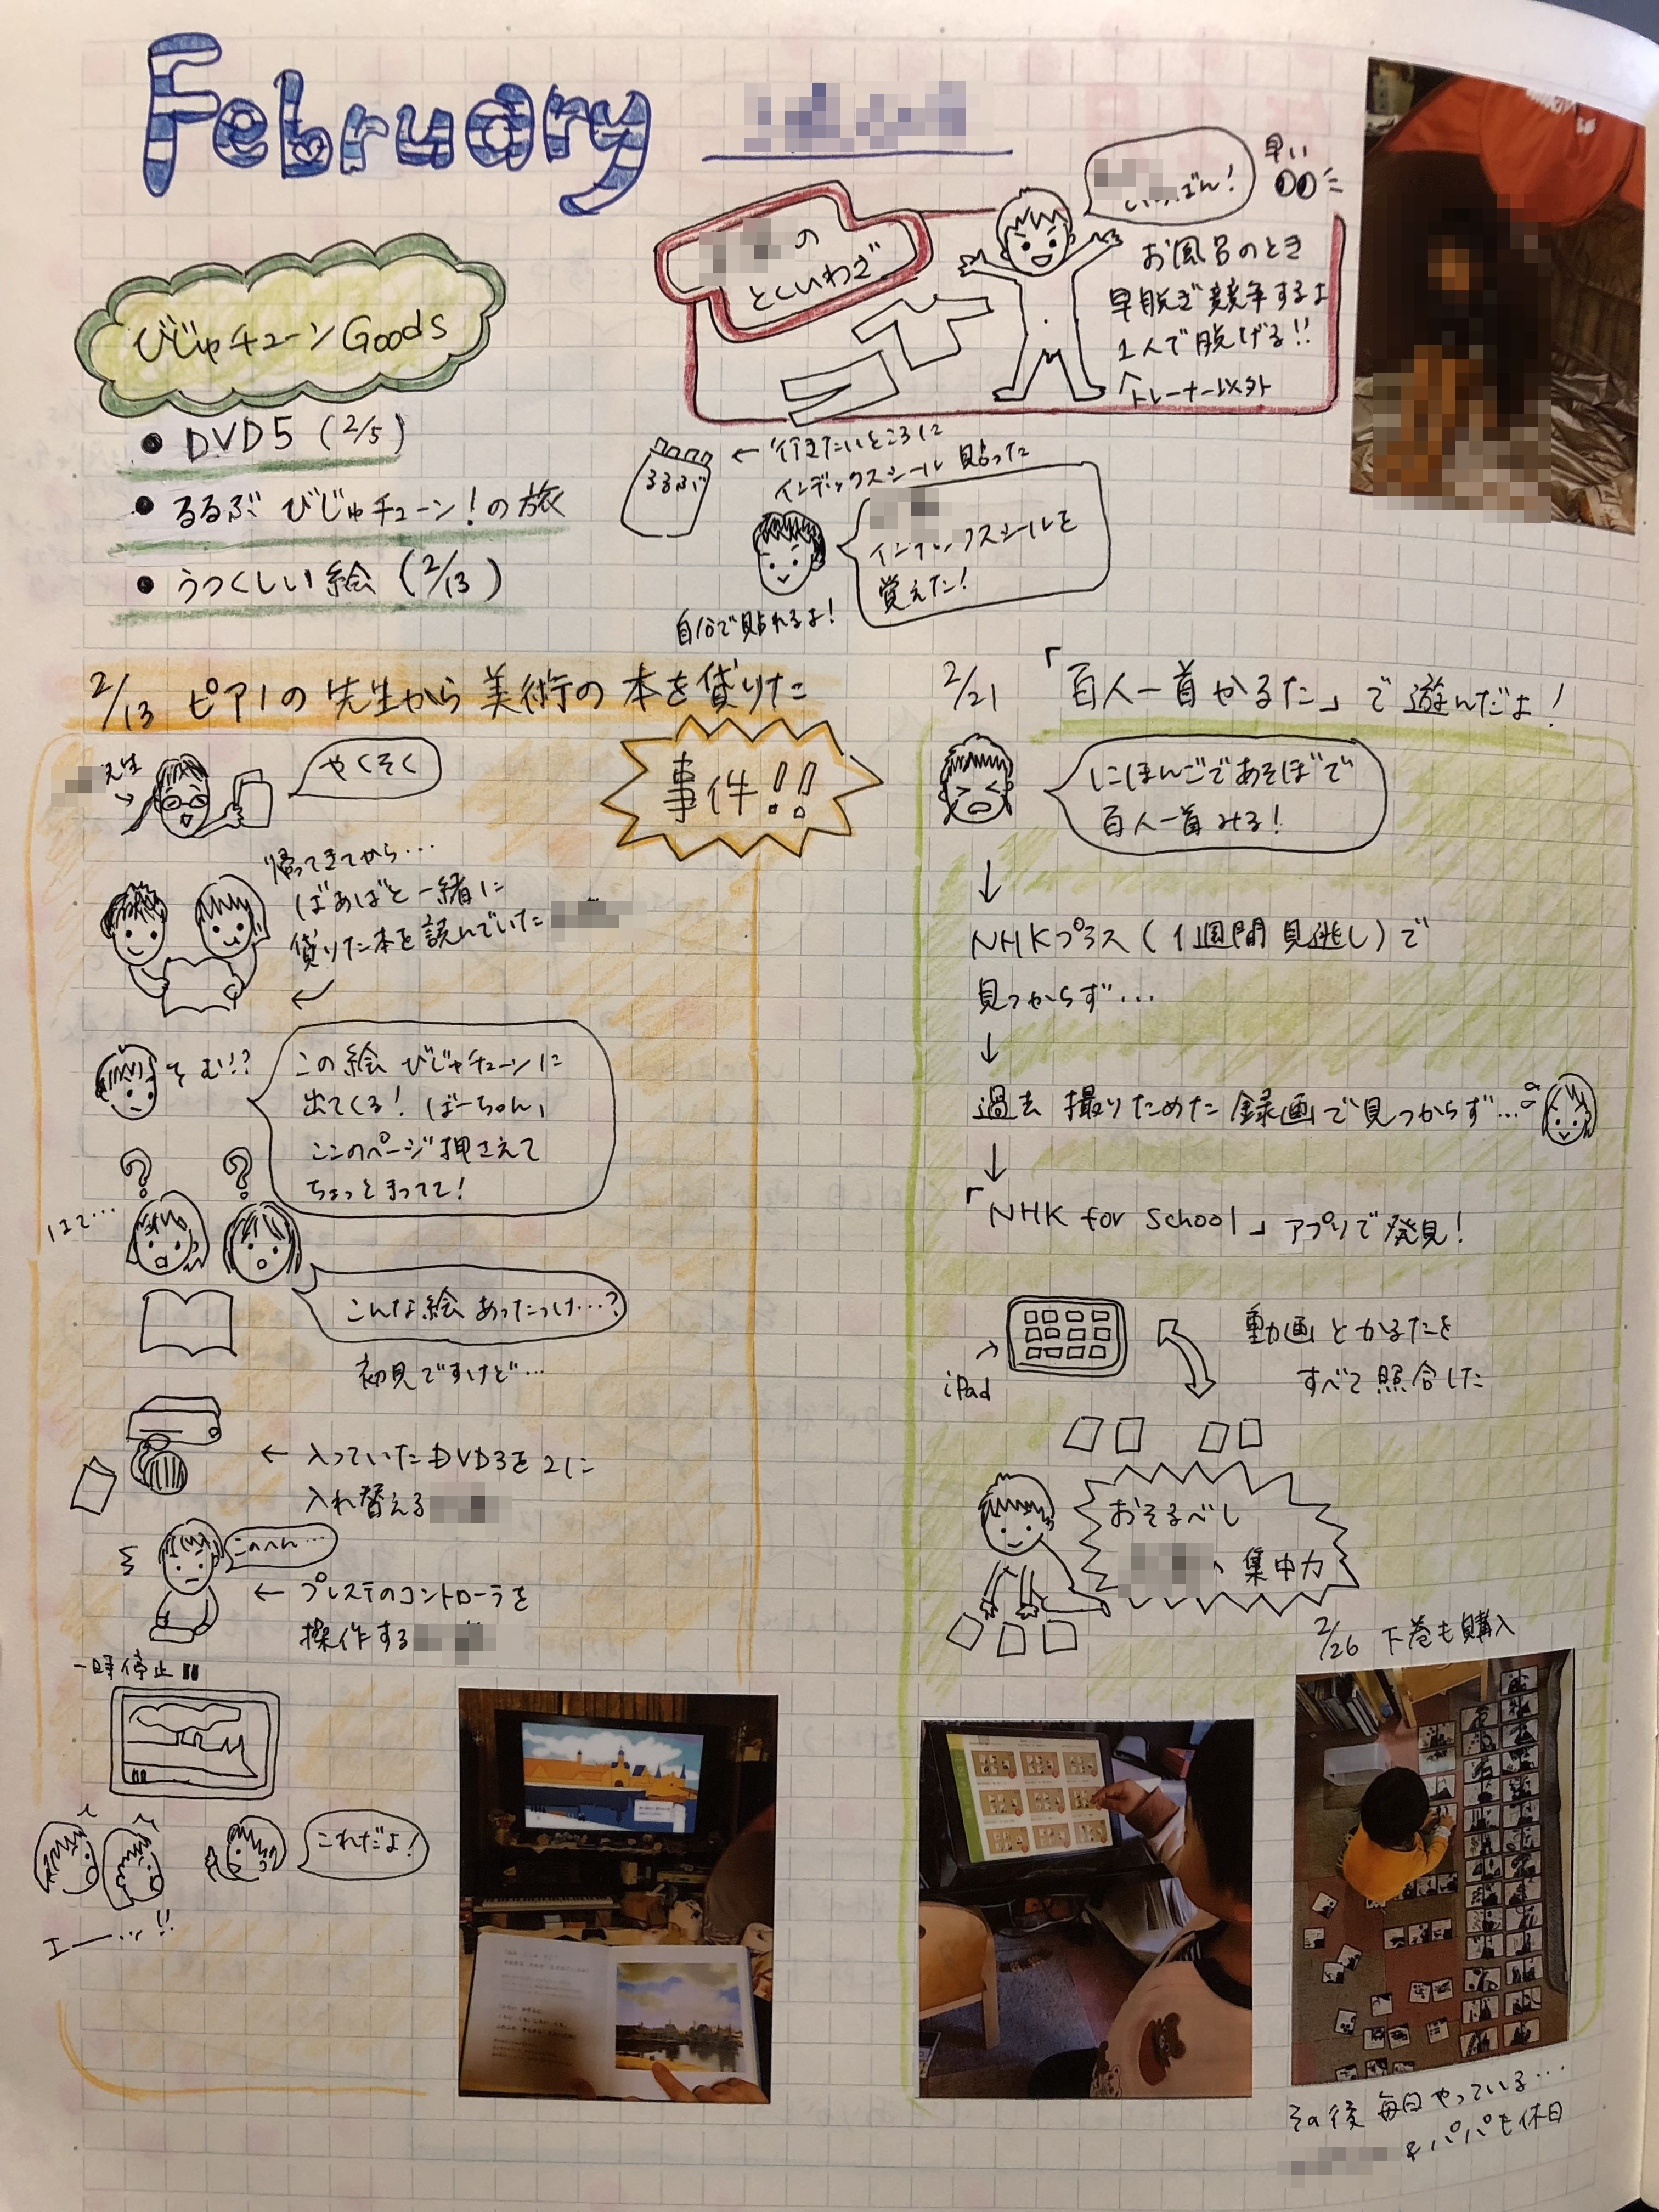 February
の
とくいわざ
ばん!
早い
お風呂のとき
早脱ぎ競争するよ
1人で脱げる!!
トレーナー以外
びじゅチューン Goods
● DVD5 (2/5)
● るるぶ びじゅチューン!の旅
● うつくしい絵 (2/13)
るるぶ
← 行きたいところに
インデックスシール 貼った
インデックスシールを
覚えた!
自分で貼れるよ!
2/13 ピアノの先生から美術の本を借りた
事件!!
先生
やくそく
帰ってきてから…
ばあばと一緒に
借りた本を読んでいた
む!?
この絵 びじゅチューンに
出てくる! ばーちゃん、
ここのページ押さえて
ちょっとまってて!
? ?
はて…
こんな絵 あったっけ…?
初見ですけど…
← 入っていたDVD3を2に
入れ替える
このへん…
← プレステのコントローラを
操作する
一時停止
これだよ!
エー…!!
2/21 「百人一首かるた」で遊んだよ!
にほんごであそぼで
百人一首みる!
↓
NHKプラス(1週間見逃し)で
見つからず…
↓
過去 撮りためた録画で見つからず…
↓
「NHK for School」アプリで発見!
iPad
動画とかるたを
すべて照合した
おそるべし
集中力
2/26 下巻も購入
その後 毎日やっている…
&パパも休日